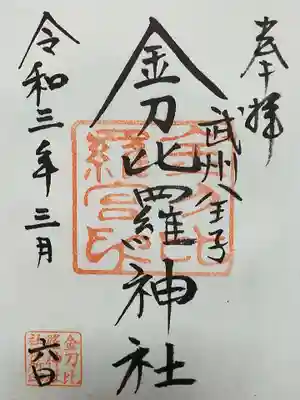 奉拝
武州八王子
金刀比羅神社
令和三年三月
六日